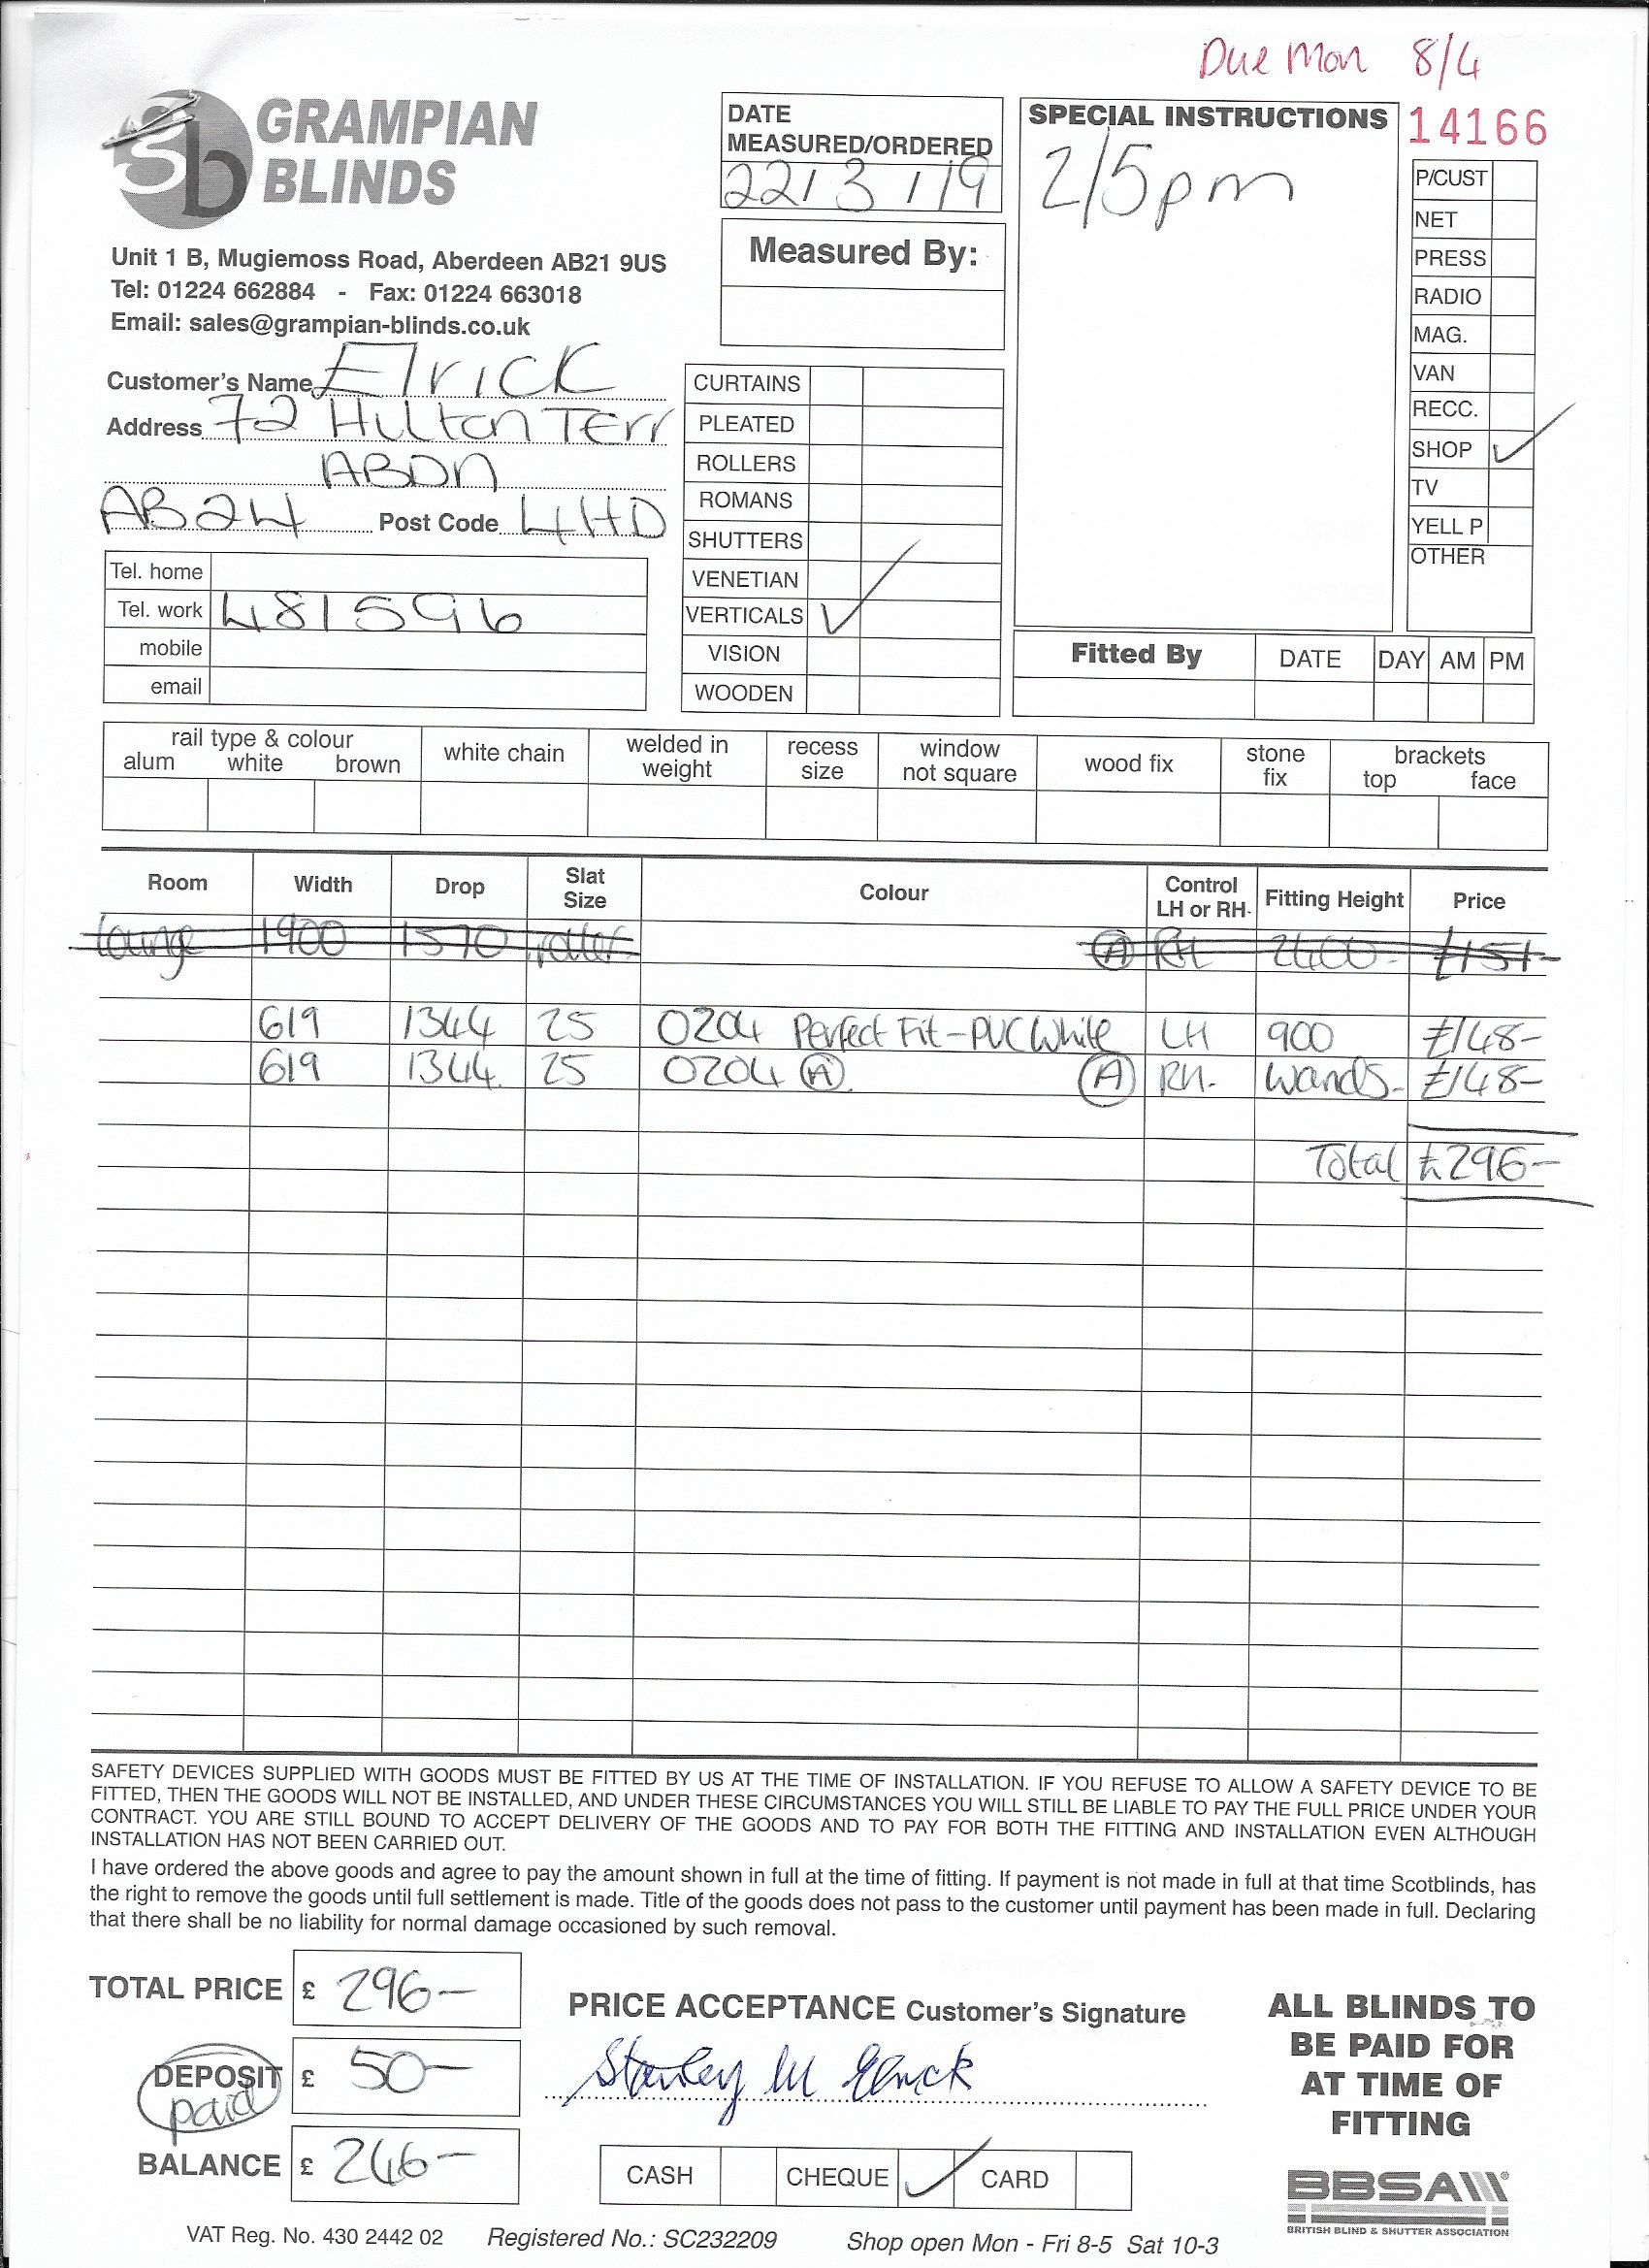 Due Mon 8/4
GRAMPIAN
BLINDS
Unit 1 B, Mugiemoss Road, Aberdeen AB21 9US
Tel: 01224 662884 - Fax: 01224 663018
Email: sales@grampian-blinds.co.uk
DATE
MEASURED/ORDERED
22/3/19
Measured By:
SPECIAL INSTRUCTIONS
2/5pm
14166
P/CUST
NET
PRESS
RADIO
MAG.
VAN
RECC.
SHOP ✓
TV
YELL P
OTHER
Customer's Name Elrick
Address 72 Hilton Terr
ABDN
AB24 Post Code 4HD
Tel. home
Tel. work 481596
mobile
email
CURTAINS
PLEATED
ROLLERS
ROMANS
SHUTTERS
VENETIAN
VERTICALS ✓
VISION
WOODEN
Fitted By DATE DAY AM PM
rail type & colour
alum white brown
white chain
welded in
weight
recess
size
window
not square
wood fix
stone
fix
brackets
top face
Room Width Drop Slat Size Colour Control LH or RH. Fitting Height Price
lounge 1900 1570 roller A RH 2400 £151-
619 1344 25 0204 Perfect Fit - PVC White LH 900 £148-
619 1344 25 0204 A A RH. Wands- £148-
Total £296-
SAFETY DEVICES SUPPLIED WITH GOODS MUST BE FITTED BY US AT THE TIME OF INSTALLATION. IF YOU REFUSE TO ALLOW A SAFETY DEVICE TO BE
FITTED, THEN THE GOODS WILL NOT BE INSTALLED, AND UNDER THESE CIRCUMSTANCES YOU WILL STILL BE LIABLE TO PAY THE FULL PRICE UNDER YOUR
CONTRACT. YOU ARE STILL BOUND TO ACCEPT DELIVERY OF THE GOODS AND TO PAY FOR BOTH THE FITTING AND INSTALLATION EVEN ALTHOUGH
INSTALLATION HAS NOT BEEN CARRIED OUT.
I have ordered the above goods and agree to pay the amount shown in full at the time of fitting. If payment is not made in full at that time Scotblinds, has
the right to remove the goods until full settlement is made. Title of the goods does not pass to the customer until payment has been made in full. Declaring
that there shall be no liability for normal damage occasioned by such removal.
TOTAL PRICE £ 296-
DEPOSIT £ 50-
paid
BALANCE £ 246-
PRICE ACCEPTANCE Customer's Signature
Stanley M Elrick
CASH CHEQUE ✓ CARD
ALL BLINDS TO
BE PAID FOR
AT TIME OF
FITTING
BBSA
BRITISH BLIND & SHUTTER ASSOCIATION
VAT Reg. No. 430 2442 02 Registered No.: SC232209 Shop open Mon - Fri 8-5 Sat 10-3